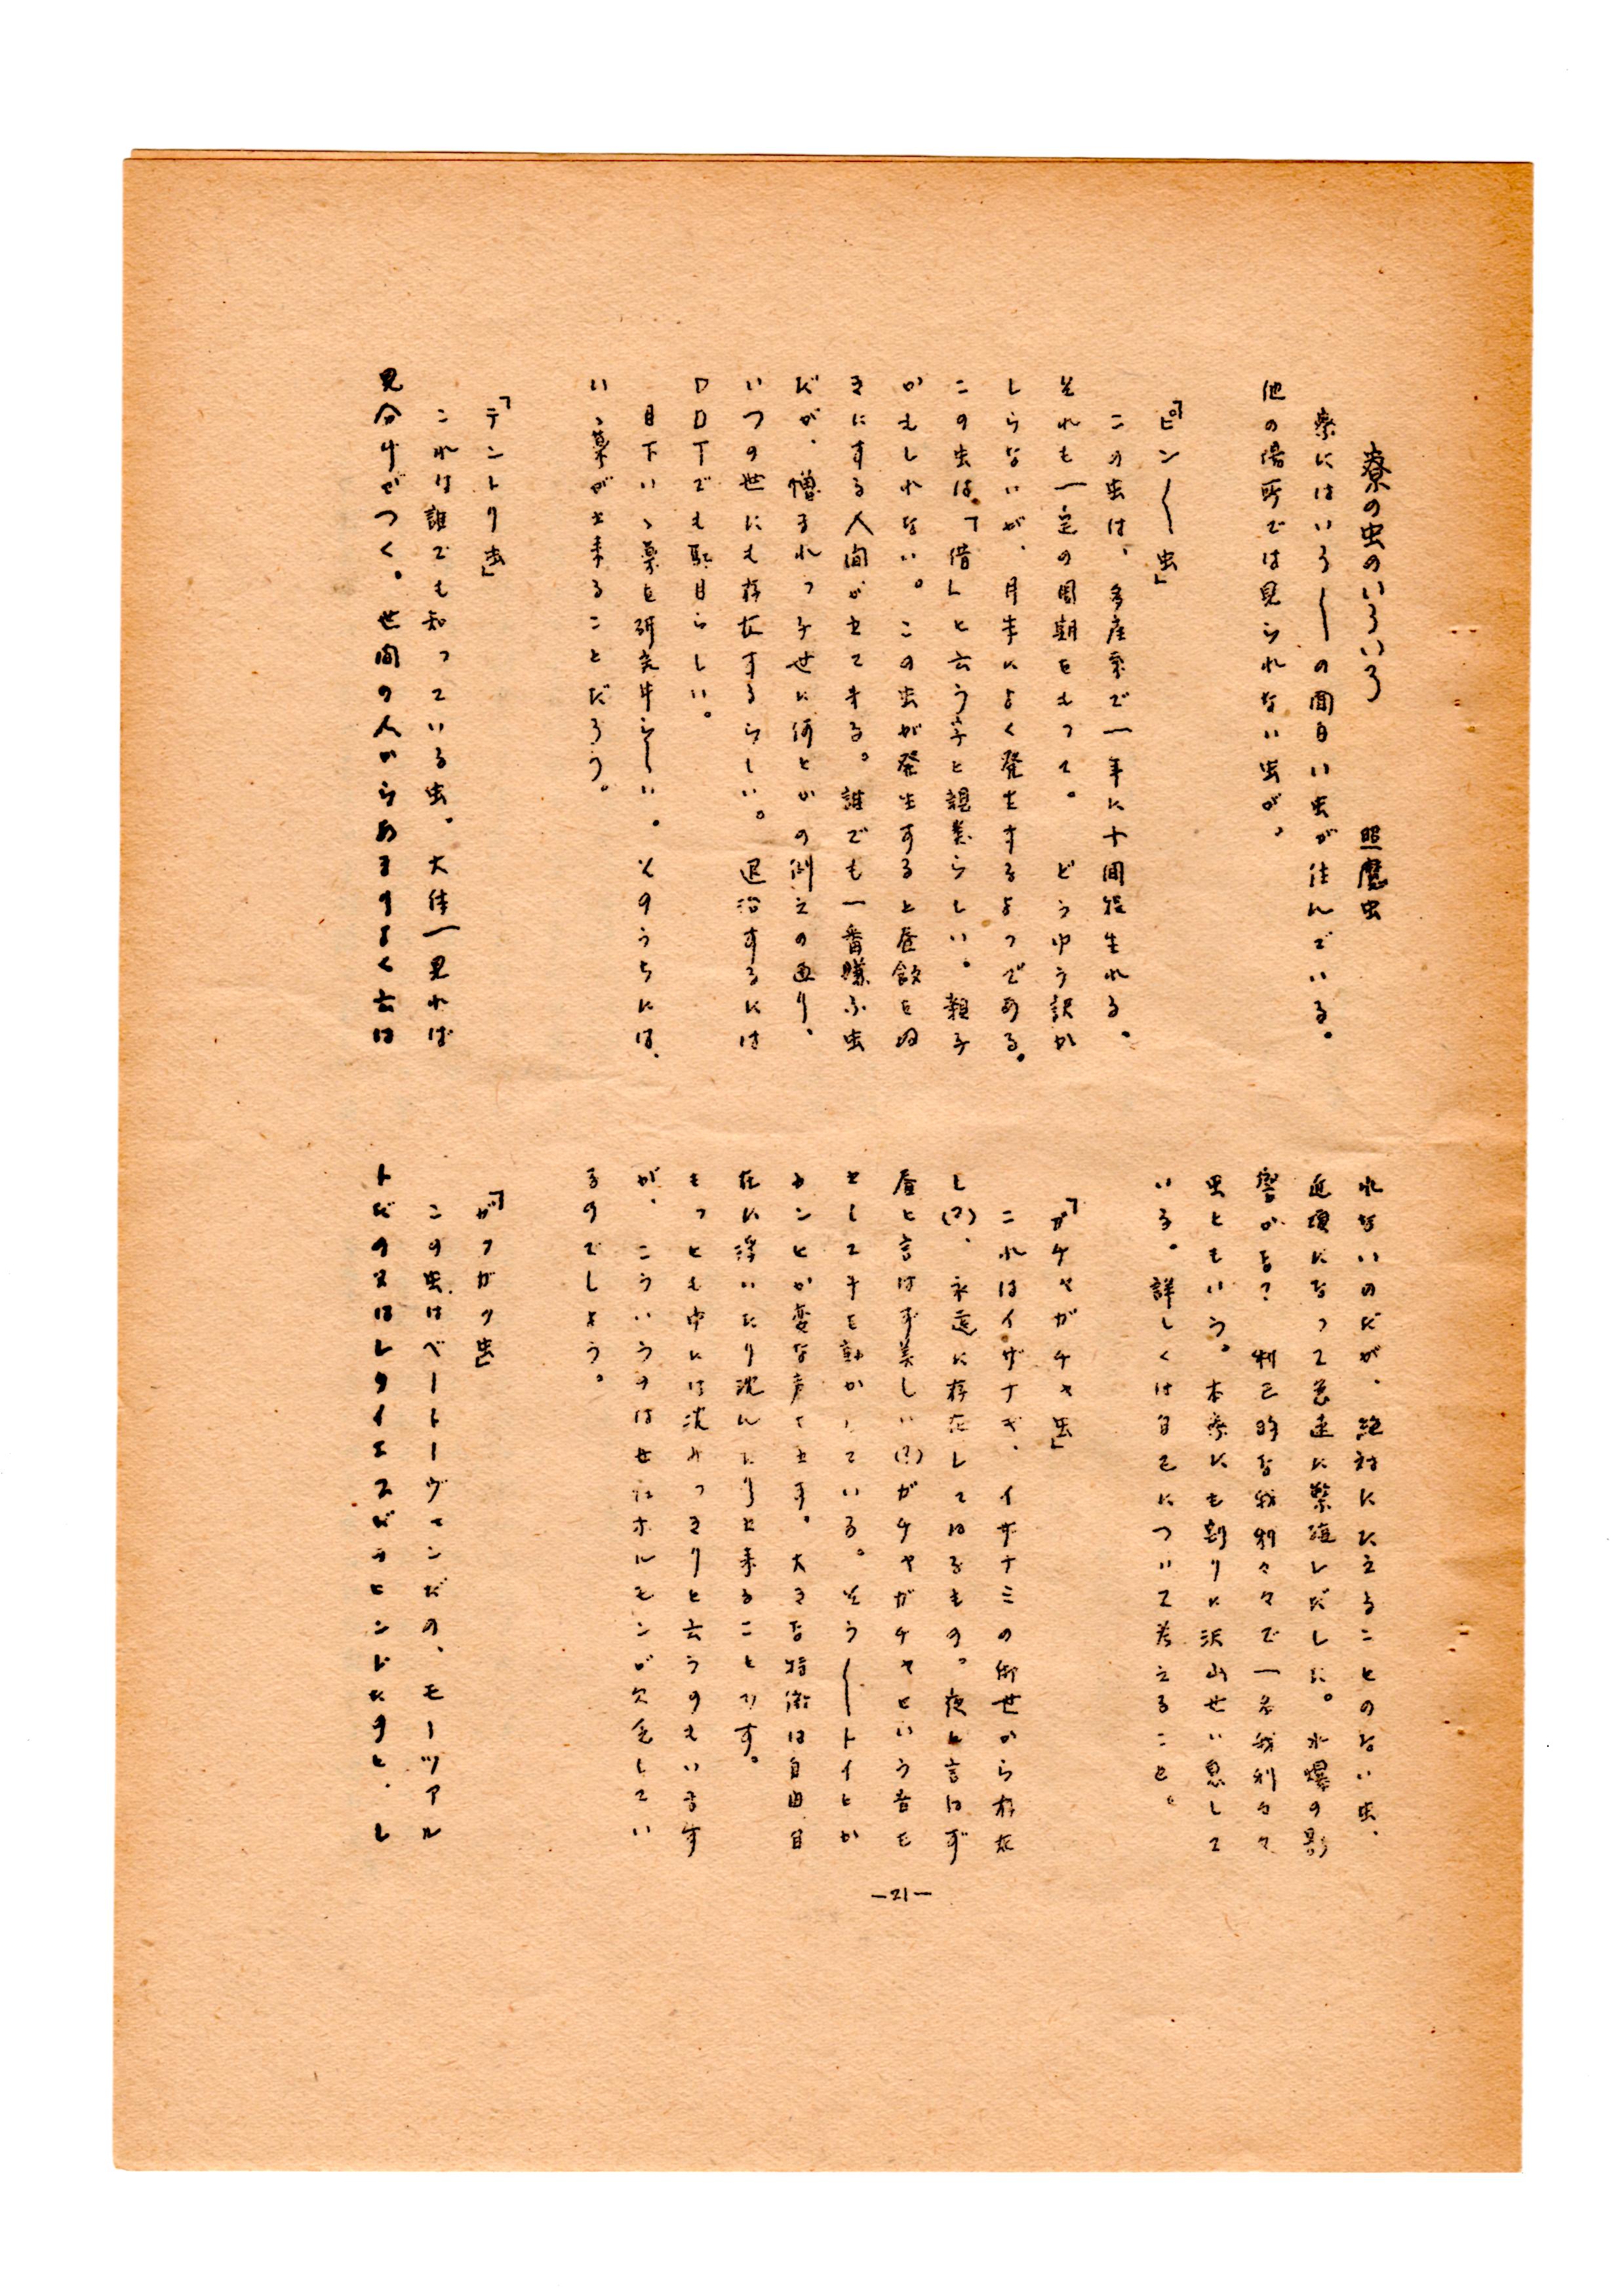 寮の虫のいろいろ　　照魔虫
寮にはいろ〳〵の面白い虫が住んでいる。
他の場所では見られない虫が。
「ピン〳〵虫」
この虫は、多産系で一年に十回程生れる。
それも一定の周期をもって。どうゆう訳か
しらないが、月末によく発生するようである。
この虫は「借」と云う字と親類らしい。親子
かもしれない。この虫が発生すると昼飯をぬ
きにする人間が出てきる。誰でも一番嫌ふ虫
だが、憎まれっ子世に何とかの例えの通り、
いつの世にも存在するらしい。退治するには
DDTでも駄目らしい。
目下いゝ薬を研究中らしい。そのうちには、
いゝ薬が出来ることだろう。
「テントリ虫」
これは誰でも知っている虫。大体一見れば
見分けがつく。世間の人からあまりよく云は
れないのだが、絶対にたえることのない虫、
近頃になって急速に繁殖しだした。水爆の影
響かな？利己的な我利々々で一名我利々々
虫ともいう。本寮にも割りに沢山せい息して
いる。詳しくは自己について考えること。
「ガチャガチャ虫」
これはイザナギ、イザナミの御世から存在
し(?)、永遠に存在してはるもの。夜と言はず
昼と言はず美しい(?)ガチャガチャという音を
出して手を動かしている。そう〳〵トイとか
カンとか変な声て出す。大きな特徴は自由自
在に浮いたり沈んだり出来ることです。
もっとも中には沈みっきりと云うのもいます
が、こういうのは世はホルモンが欠乏してい
るのでしょう。
「ガフガッ虫」
この虫はベートーヴェンだの、モーツアル
トだのヌはレタイエスだうヒンドだすと、し
—21—